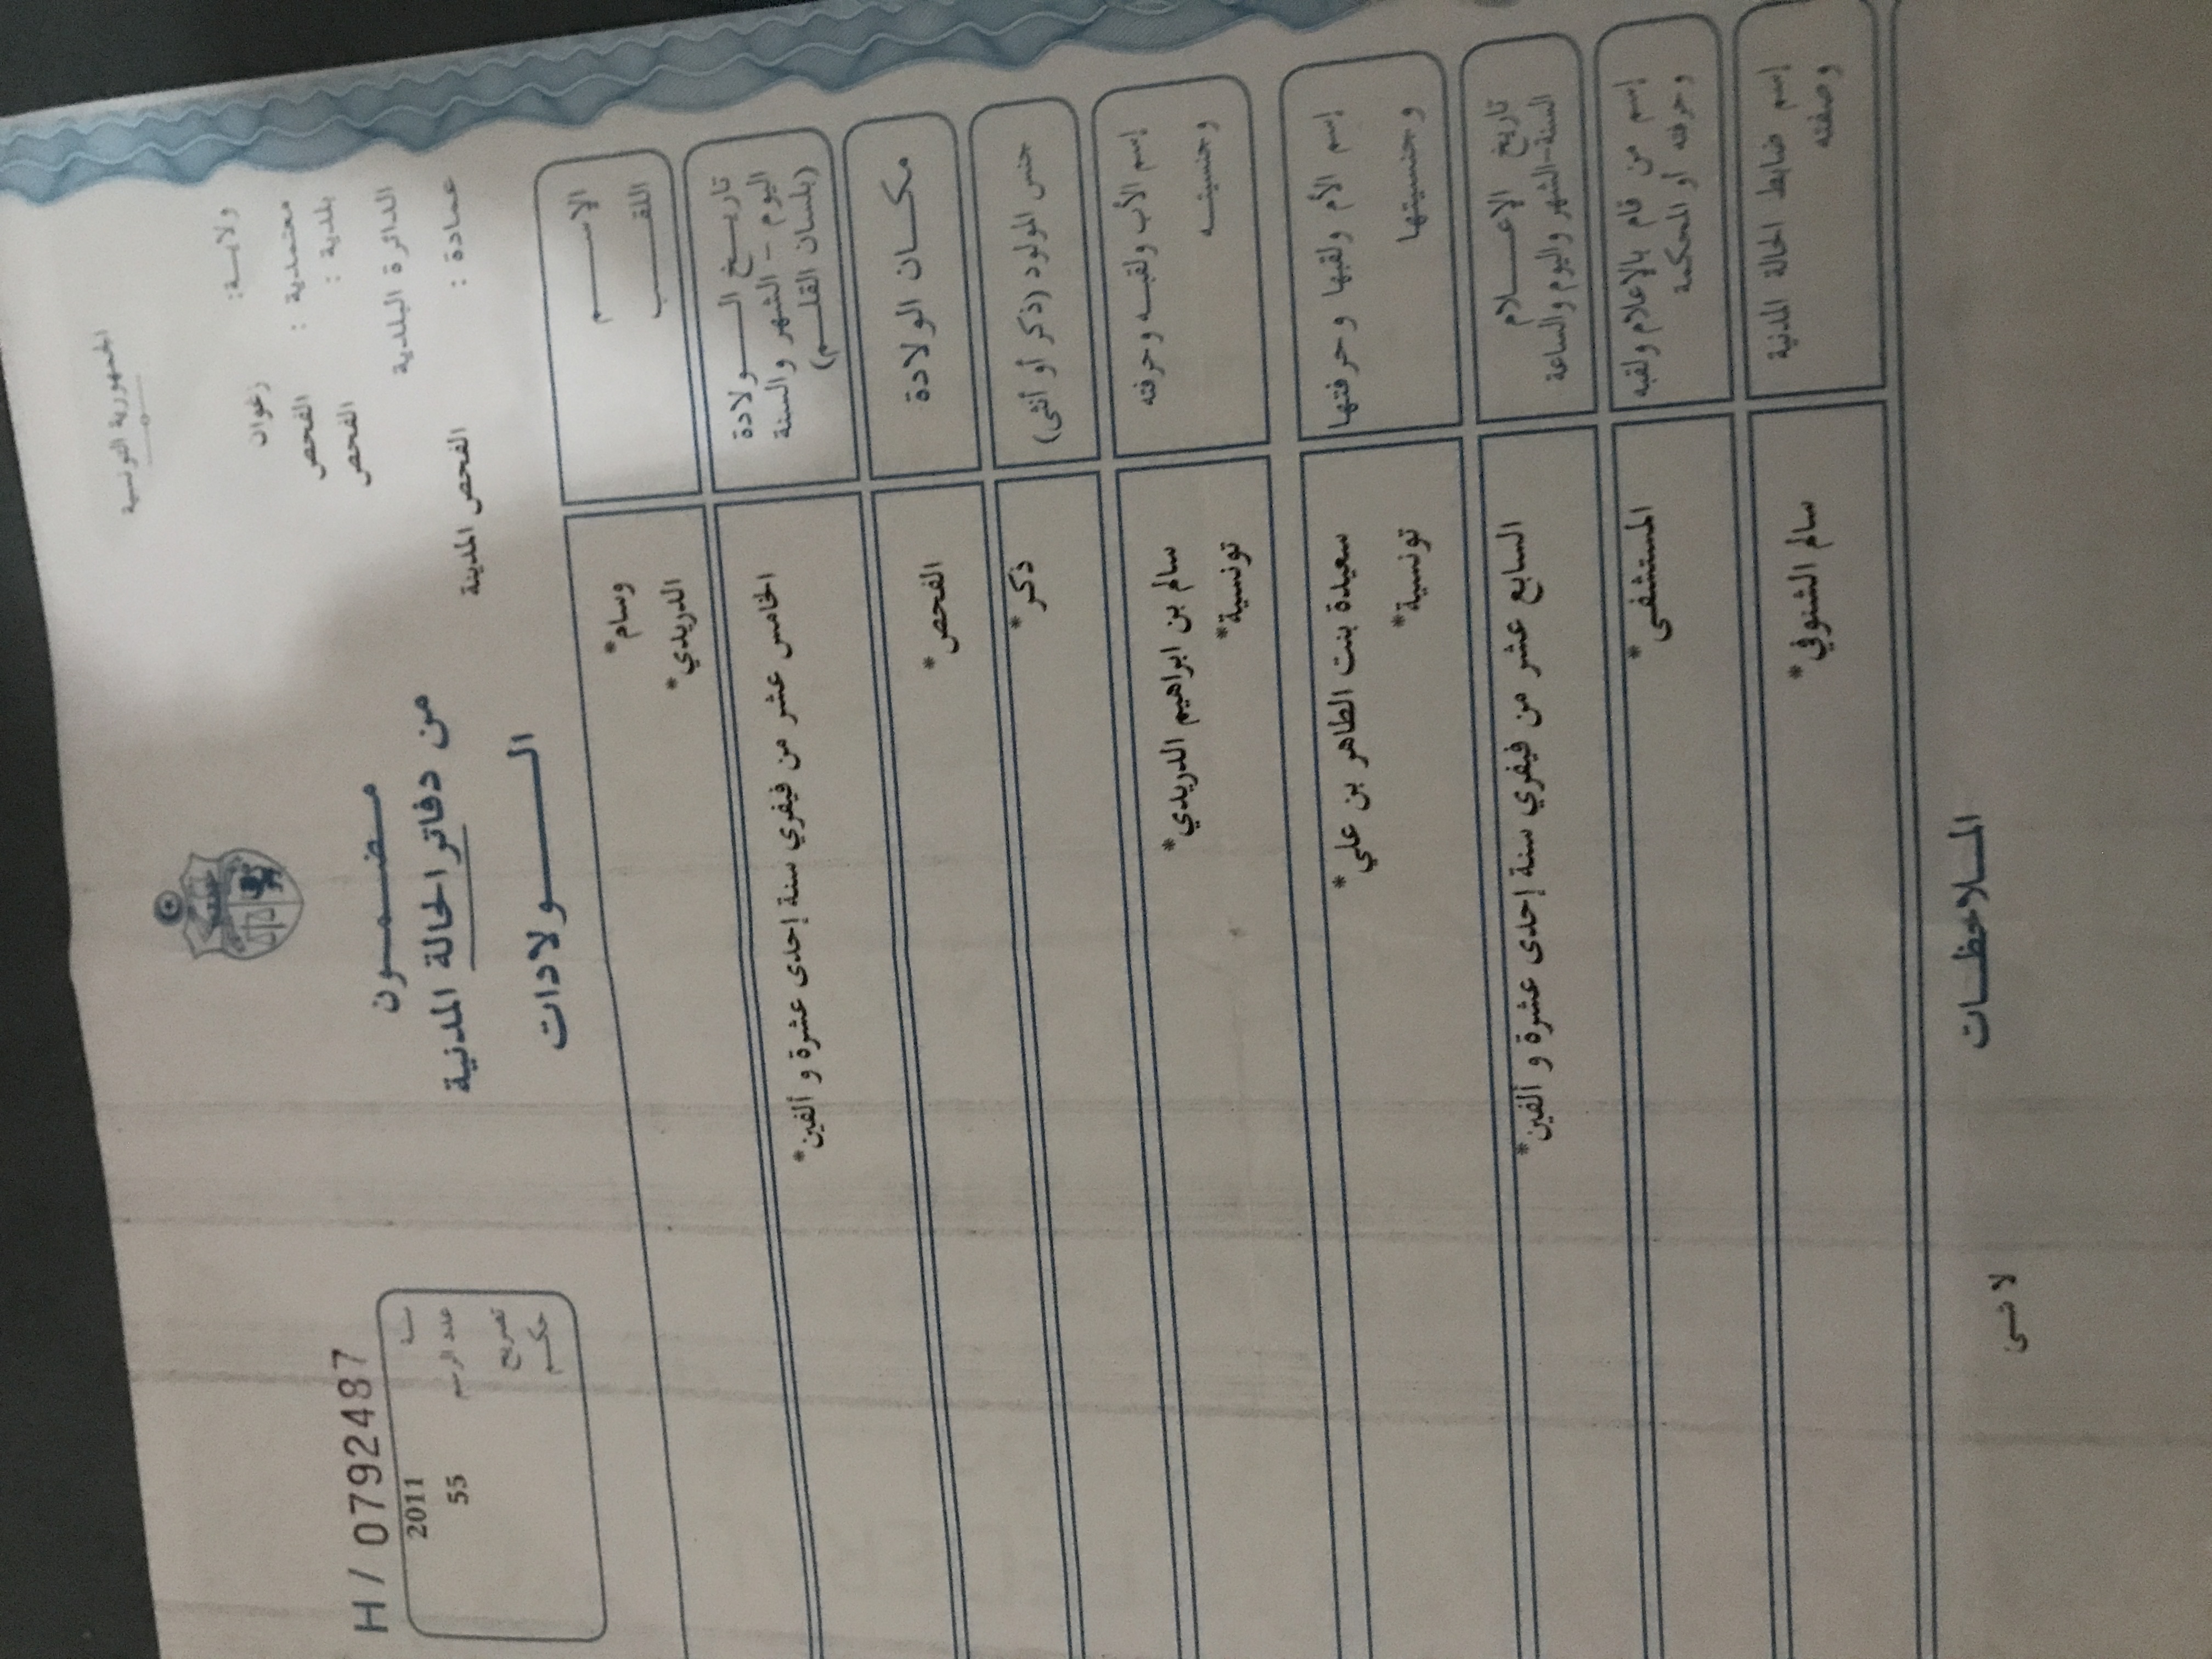 الجمهورية التونسية
ولايـــة: زغوان
معتمدية : الفحص
بلدية : الفحص
الدائرة البلدية
عمادة : الفحص المدينة
مضــمــون
من دفاتر الحالة المدنية
الـــــولادات
H / 0792487
سنة 2011
عدد الرسم 55
تصريح
حكـــم
الإســـــم
اللقـــــب
وسام*
الدريدي*
تاريـــخ الــــولادة
اليوم - الشهر والسنة
(بلسان القلـــم)
الخامس عشر من فيفري سنة إحدى عشرة و ألفين*
مكـــان الولادة
الفحص*
جنس المولود (ذكر أو أنثى)
ذكر*
إسم الأب ولقبـه وحرفته
وجنسيتــه
سالم بن ابراهيم الدريدي*
تونسية*
إسم الأم ولقبها وحرفتها
وجنسيتها
سعيدة بنت الطاهر بن علي*
تونسية*
تاريخ الإعـــلام
السنة-الشهر واليوم والساعة
السابع عشر من فيفري سنة إحدى عشرة و ألفين*
إسم من قام بالإعلام ولقبه
وحرفته أو المحكمة
المستشفى*
إسم ضابط الحالة المدنية
وصفته
سالم الشنوفي*
المــلاحظــات
لا شـى